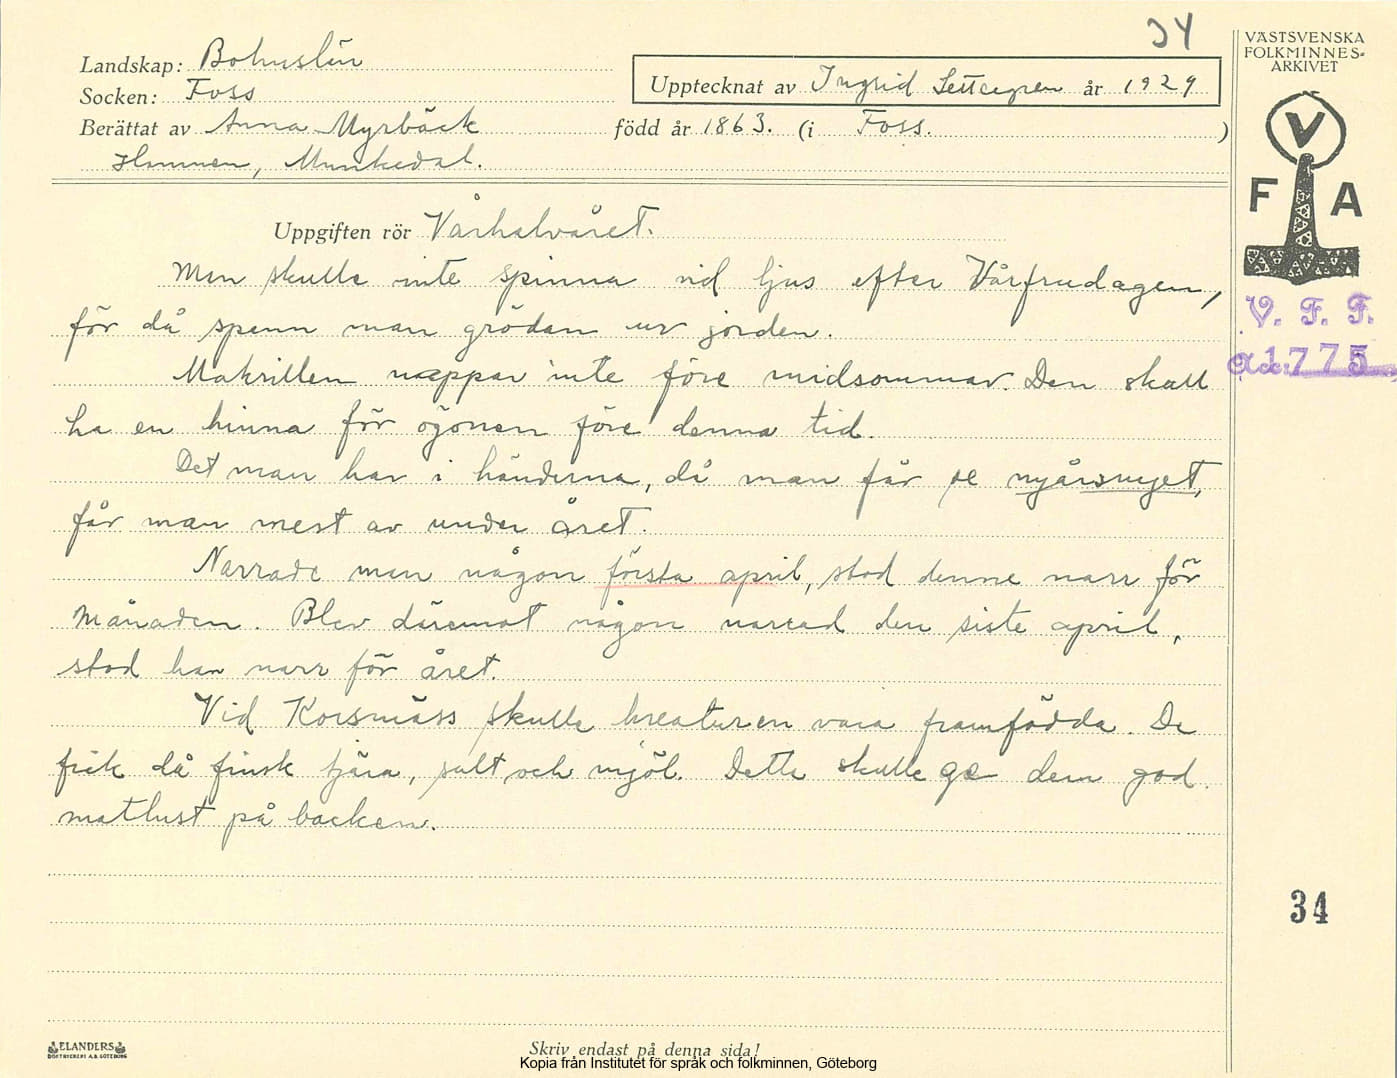 34
VÄSTSVENSKA
FOLKMINNES-
ARKIVET
Landskap: Bohuslän
Socken: Foss
Upptecknat av Ingrid år 1929
Berättat av Anna Myrbäck född år 1863. (i Foss. )
Hamnen, Munkedal.
V
F A
V. F. F.
acc: 1775
Uppgiften rör Vårhalvåret.
Man skulle inte spinna vid ljus efter Vårfrudagen,
för då spann man grödan ur jorden.
Makrillen nappar inte före midsommar. Den skall
ha en hinna för ögonen före denna tid.
Det man har i händerna, då man får se nyårsnyet,
får man mest av under året.
Narrade man någon första april, stod denne narr för
månaden. Blev däremot någon narrad den siste april,
stod han narr för året.
Vid Korsmäss skulle kreaturen vara framfödda. De
fick då finsk tjära, salt och mjöl. Detta skulle ge dem god
matlust på backen.
34
ELANDERS
BOKTRYCKERI A.B. GÖTEBORG
Skriv endast på denna sida!
Kopia från Institutet för språk och folkminnen, Göteborg